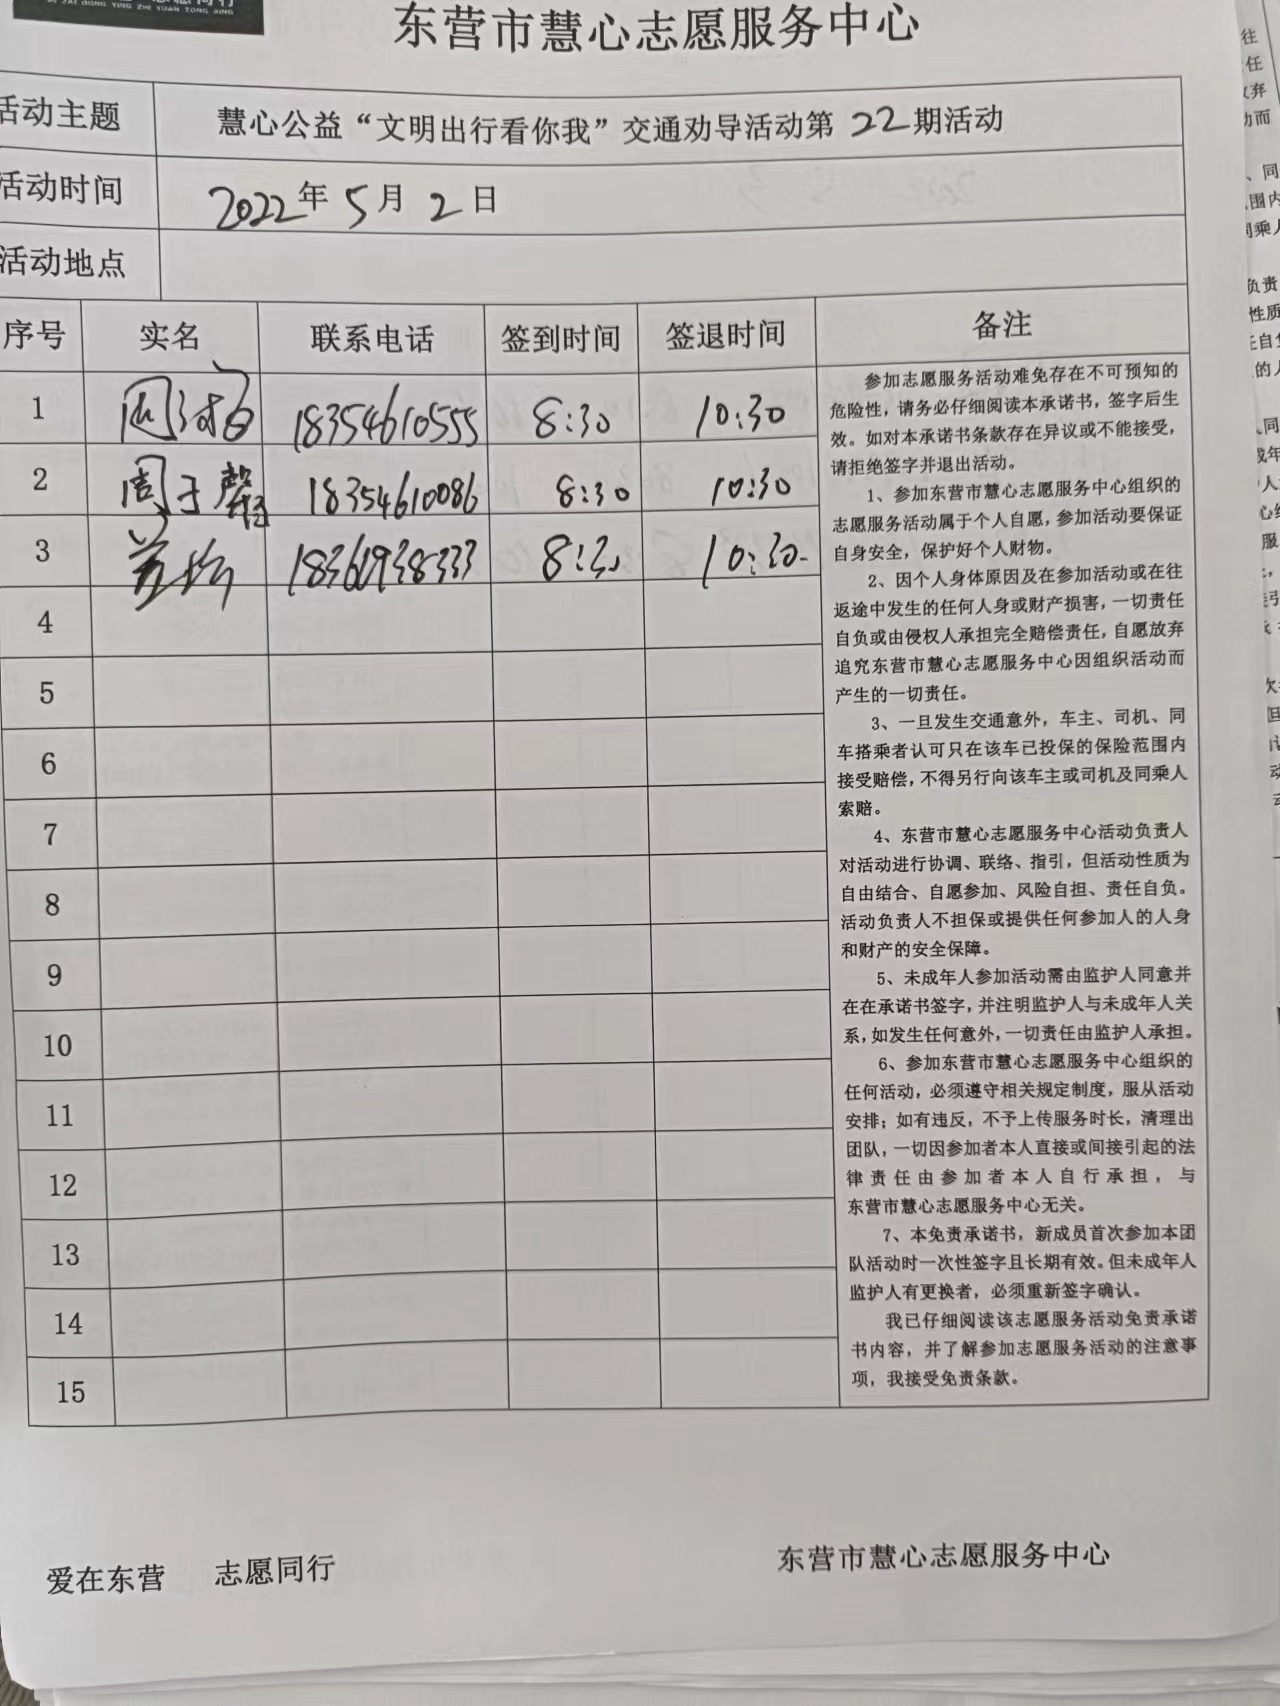 ZAI DONG YING ZHI YUAN TONG XING
东营市慧心志愿服务中心
活动主题 慧心公益“文明出行看你我”交通劝导活动第22期活动
活动时间 2022年5月2日
活动地点
序号 实名 联系电话 签到时间 签退时间 备注
1 18354610555 8:30 10:30
2 周于馨 18354610086 8:30 10:30
3 18361938333 8:30 10:30
4
5
6
7
8
9
10
11
12
13
14
15
参加志愿服务活动难免存在不可预知的
危险性，请务必仔细阅读本承诺书，签字后生
效。如对本承诺书条款存在异议或不能接受，
请拒绝签字并退出活动。
1、参加东营市慧心志愿服务中心组织的
志愿服务活动属于个人自愿，参加活动要保证
自身安全，保护好个人财物。
2、因个人身体原因及在参加活动或在往
返途中发生的任何人身或财产损害，一切责任
自负或由侵权人承担完全赔偿责任，自愿放弃
追究东营市慧心志愿服务中心因组织活动而
产生的一切责任。
3、一旦发生交通意外，车主、司机、同
车搭乘者认可只在该车已投保的保险范围内
接受赔偿，不得另行向该车主或司机及同乘人
索赔。
4、东营市慧心志愿服务中心活动负责人
对活动进行协调、联络、指引，但活动性质为
自由结合、自愿参加、风险自担、责任自负。
活动负责人不担保或提供任何参加人的人身
和财产的安全保障。
5、未成年人参加活动需由监护人同意并
在在承诺书签字，并注明监护人与未成年人关
系，如发生任何意外，一切责任由监护人承担。
6、参加东营市慧心志愿服务中心组织的
任何活动，必须遵守相关规定制度，服从活动
安排；如有违反，不予上传服务时长，清理出
团队，一切因参加者本人直接或间接引起的法
律责任由参加者本人自行承担，与
东营市慧心志愿服务中心无关。
7、本免责承诺书，新成员首次参加本团
队活动时一次性签字且长期有效。但未成年人
监护人有更换者，必须重新签字确认。
我已仔细阅读该志愿服务活动免责承诺
书内容，并了解参加志愿服务活动的注意事
项，我接受免责条款。
爱在东营 志愿同行 东营市慧心志愿服务中心